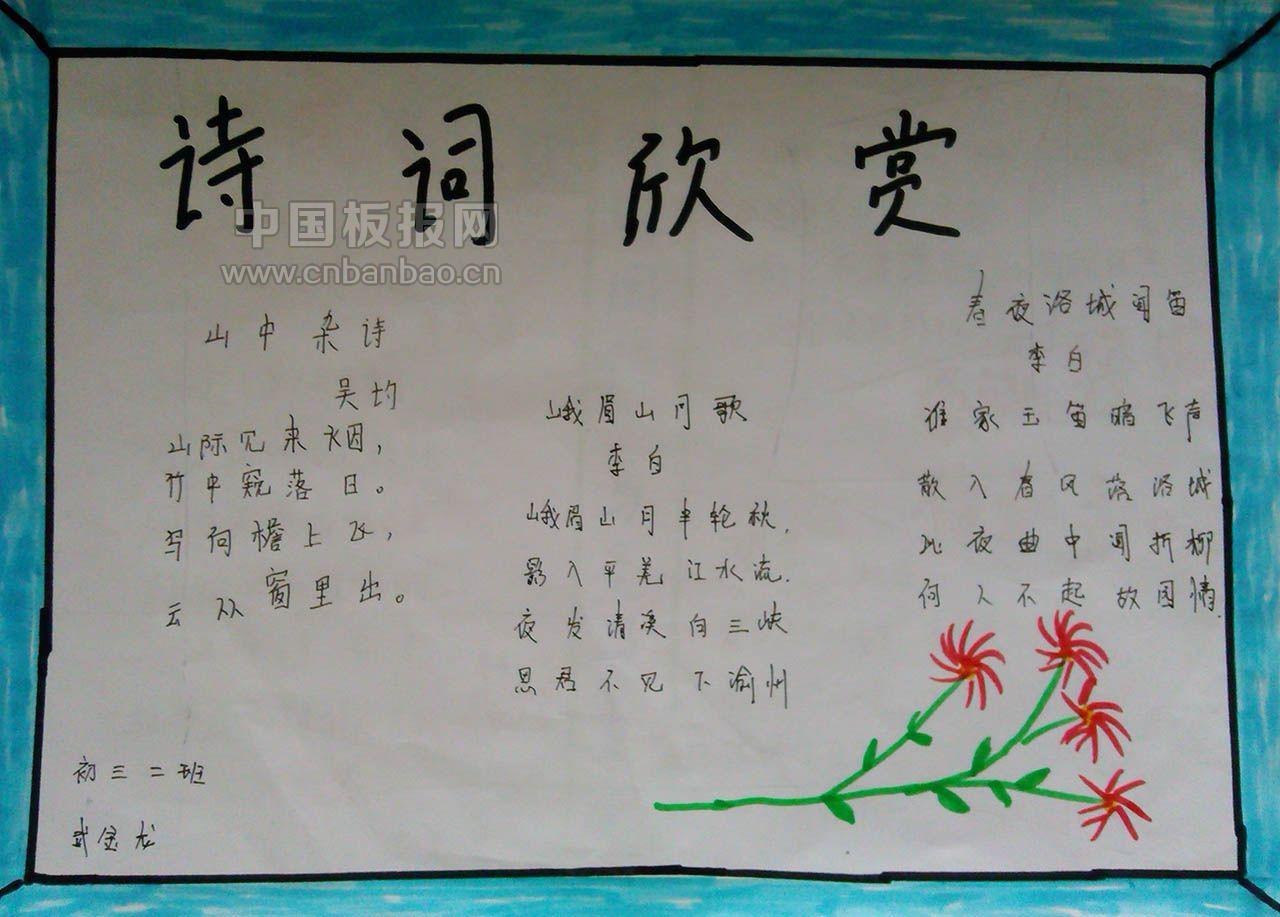 诗词欣赏
中国板报网
www.cnbanbao.cn
山中杂诗
吴均
山际见来烟，
竹中窥落日。
鸟向檐上飞，
云从窗里出。
峨眉山月歌
李白
峨眉山月半轮秋，
影入平羌江水流．
夜发清溪向三峡
思君不见下渝州
春夜洛城闻笛
李白
谁家玉笛暗飞声
散入春风落洛城
此夜曲中闻折柳
何人不起故园情．
初三二班
武金龙